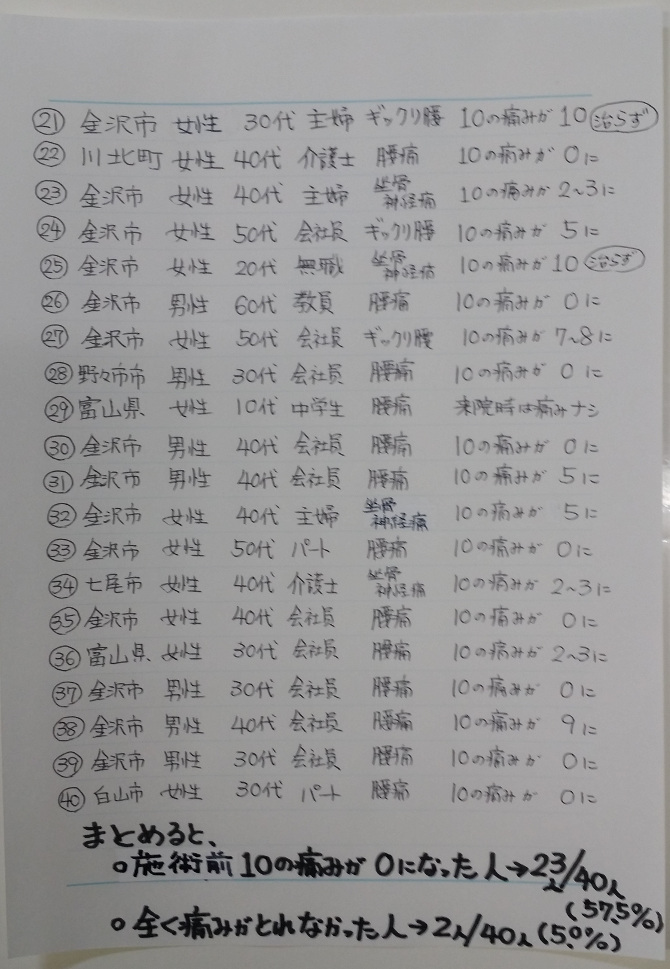 ㉑ 金沢市 女性 30代 主婦 ギックリ腰 10の痛みが 10 治らず
㉒ 川北町 女性 40代 介護士 腰痛 10の痛みが 0に
㉓ 金沢市 女性 40代 主婦 坐骨神経痛 10の痛みが 2~3に
㉔ 金沢市 女性 50代 会社員 ギックリ腰 10の痛みが 5に
㉕ 金沢市 女性 20代 無職 坐骨神経痛 10の痛みが 10 治らず
㉖ 金沢市 男性 60代 教員 腰痛 10の痛みが 0に
㉗ 金沢市 女性 50代 会社員 ギックリ腰 10の痛みが 7~8に
㉘ 野々市市 男性 30代 会社員 腰痛 10の痛みが 0に
㉙ 富山県 女性 10代 中学生 腰痛 来院時は痛みナシ
㉚ 金沢市 男性 40代 会社員 腰痛 10の痛みが 0に
㉛ 金沢市 男性 40代 会社員 腰痛 10の痛みが 5に
㉜ 金沢市 女性 40代 主婦 坐骨神経痛 10の痛みが 5に
㉝ 金沢市 女性 50代 パート 腰痛 10の痛みが 0に
㉞ 七尾市 女性 40代 介護士 坐骨神経痛 10の痛みが 2~3に
㉟ 金沢市 女性 40代 会社員 腰痛 10の痛みが 0に
㊱ 富山県 女性 30代 会社員 腰痛 10の痛みが 2~3に
㊲ 金沢市 男性 30代 会社員 腰痛 10の痛みが 0に
㊳ 金沢市 男性 40代 会社員 腰痛 10の痛みが 9に
㊴ 金沢市 男性 30代 会社員 腰痛 10の痛みが 0に
㊵ 白山市 女性 30代 パート 腰痛 10の痛みが 0に
まとめると、
○施術前10の痛みが0になった人→23人/40人(57.5%)
○全く痛みがとれなかった人→2人/40人(5.0%)